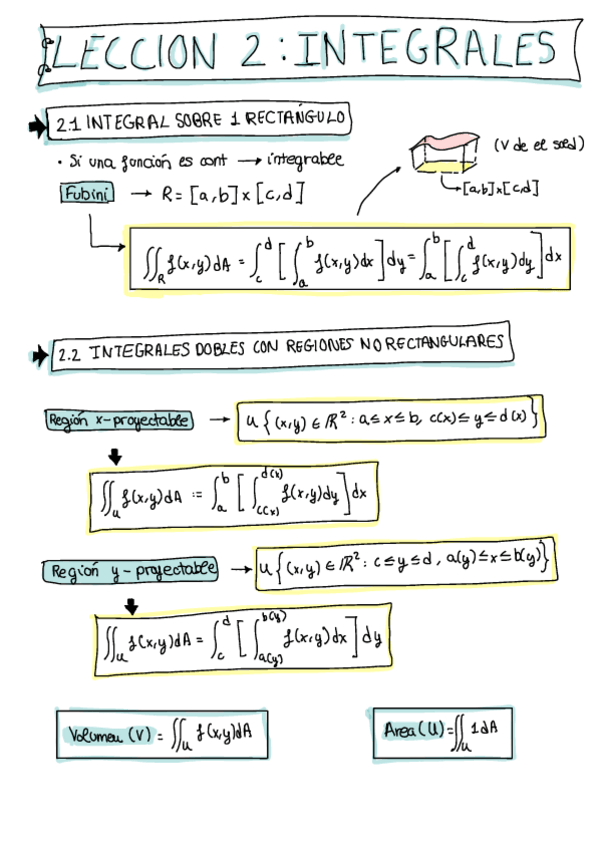 LECCION 2: INTEGRALES
2.1 INTEGRAL SOBRE 1 RECTÁNGULO
• Si una función es cont → integrable
(V de el sólid)
Fubini → R = [a,b]x[c,d]
→[a,b]x[c,d]
∬_R f(x,y)dA = ∫_c^d [∫_a^b f(x,y)dx]dy = ∫_a^b [∫_c^d f(x,y)dy]dx
2.2 INTEGRALES DOBLES CON REGIONES NO RECTANGULARES
Región x-proyectable → U {(x,y) ∈ ℝ² : a ≤ x ≤ b, c(x) ≤ y ≤ d(x)}
∬_U f(x,y)dA := ∫_a^b [∫_{c(x)}^{d(x)} f(x,y)dy]dx
Región y-proyectable → U {(x,y) ∈ ℝ² : c ≤ y ≤ d, a(y) ≤ x ≤ b(y)}
∬_U f(x,y)dA = ∫_c^d [∫_{a(y)}^{b(y)} f(x,y)dx]dy
Volumen (V) = ∬_U f(x,y)dA
Area(U) = ∬_U 1dA